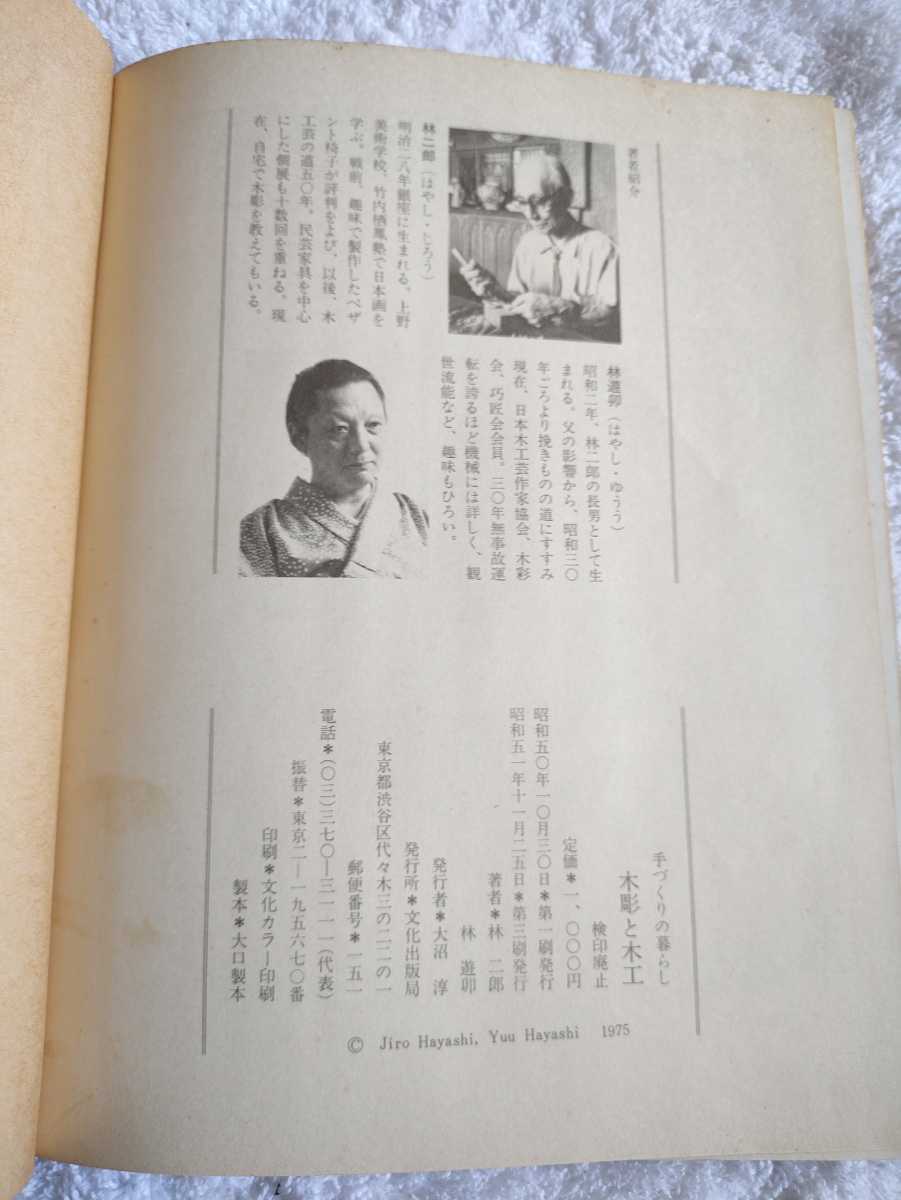 著者紹介
林二郎（はやし・じろう）
明治二八年銀座に生まれる。上野
美術学校、竹内栖鳳塾で日本画を
学ぶ。戦前、趣味で製作したペザ
ント椅子が評判をよび、以後、木
工芸の道五〇年。民芸家具を中心
にした個展も十数回を重ねる。現
在、自宅で木彫を教えてもいる。
林遊卯（はやし・ゆうう）
昭和二年、林二郎の長男として生
まれる。父の影響から、昭和三〇
年ごろより挽きものの道にすすみ
現在、日本木工芸作家協会、木彩
会、巧匠会会員。三〇年無事故運
転を誇るほど機械には詳しく、観
世流能など、趣味もひろい。
手づくりの暮らし
木彫と木工
検印廃止
定価＊一、〇〇〇円
昭和五〇年一〇月三〇日＊第一刷発行
昭和五一年十一月二五日＊第三刷発行
著者＊林 二郎
林 遊卯
発行者＊大沼 淳
発行所＊文化出版局
東京都渋谷区代々木三の二二の一
郵便番号＊一五一
電話＊(〇三)三七〇―三一一一(代表)
振替＊東京二―一九五六七〇番
印刷＊文化カラー印刷
製本＊大口製本
© Jiro Hayashi, Yuu Hayashi 1975